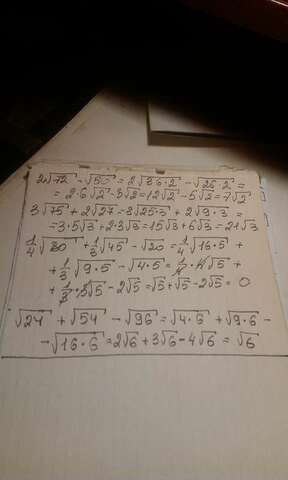 2√72 - √50 = 2√36·2 - √25·2 =
= 2·6√2 - 5√2 = 12√2 - 5√2 = 7√2
3√75 + 2√27 = 3√25·3 + 2√9·3 =
= 3·5√3 + 2·3√3 = 15√3 + 6√3 = 21√3
1/4√80 + 1/3√45 - √20 = 1/4√16·5 +
+ 1/3√9·5 - √4·5 = 1/4·4√5 +
+ 1/3·3√5 - 2√5 = √5 + √5 - 2√5 = 0
√24 + √54 - √96 = √4·6 + √9·6 -
- √16·6 = 2√6 + 3√6 - 4√6 = √6